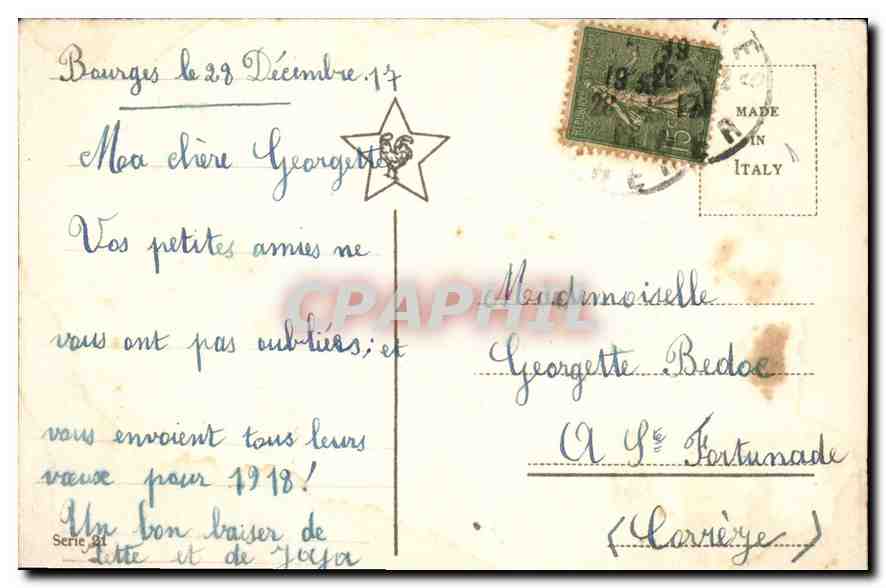 Bourges le 28 Décembre 17
Ma chère Georgette
Vos petites amies ne
vous ont pas oubliées; et
vous envoient tous leurs
vœux pour 1918!
Un bon baiser de
et de
Serie 21
MADE
IN
ITALY
Mademoiselle
Georgette Bedoc
A Ste Fortunade
(Corrèze)
CPAPHIL